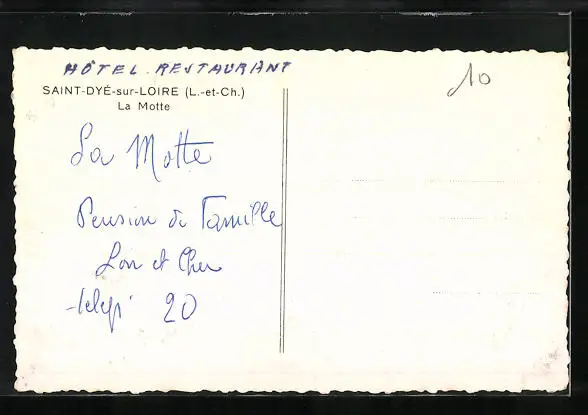 HÔTEL-RESTAURANT
10
SAINT-DYÉ-sur-LOIRE (L.-et-Ch.)
La Motte
La Motte
Pension de Famille
Loir et Cher
telep' 20